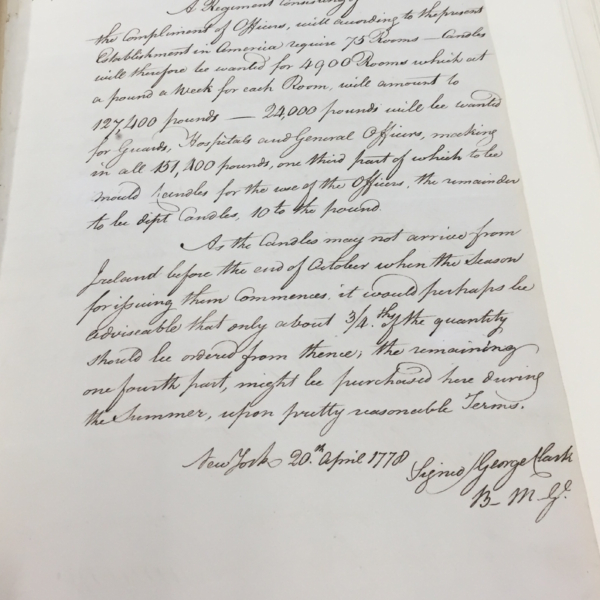 A Regiment Consisting of
the Compliment of Officers, will according to the present
Establishment in America require 75 Rooms — Candles
will therefore be wanted for 4900 Rooms which at
a pound a Week for each Room, will amount to
127,400 pounds — 24,000 pounds will be wanted
for Guards, Hospitals and General Officers, making
in all 151,400 pounds, one third part of which to be
Mould Candles for the use of the Officers, the remainder
to be dipt Candles, 10 to the pound.
As the Candles may not arrive from
Ireland before the end of October when the Season
for issuing them Commences, it would perhaps be
adviseable that only about 3/4.ths of the quantity
should be ordered from thence; the remaining
one fourth part, might be purchased here during
the Summer, upon pretty reasonable Terms.
New York 20.th April 1778
Signed George Clark
B— M G.l